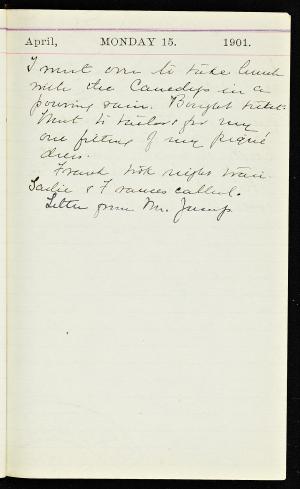 April, MONDAY 15. 1901.
I went over to take lunch
with the Canedys in a
pouring rain. Bought ticket.
Went to tailors for my
one fitting of my piqué
dress.
Frank took night train.
Sadie & Frances called.
Letter from Mr. Jessup.